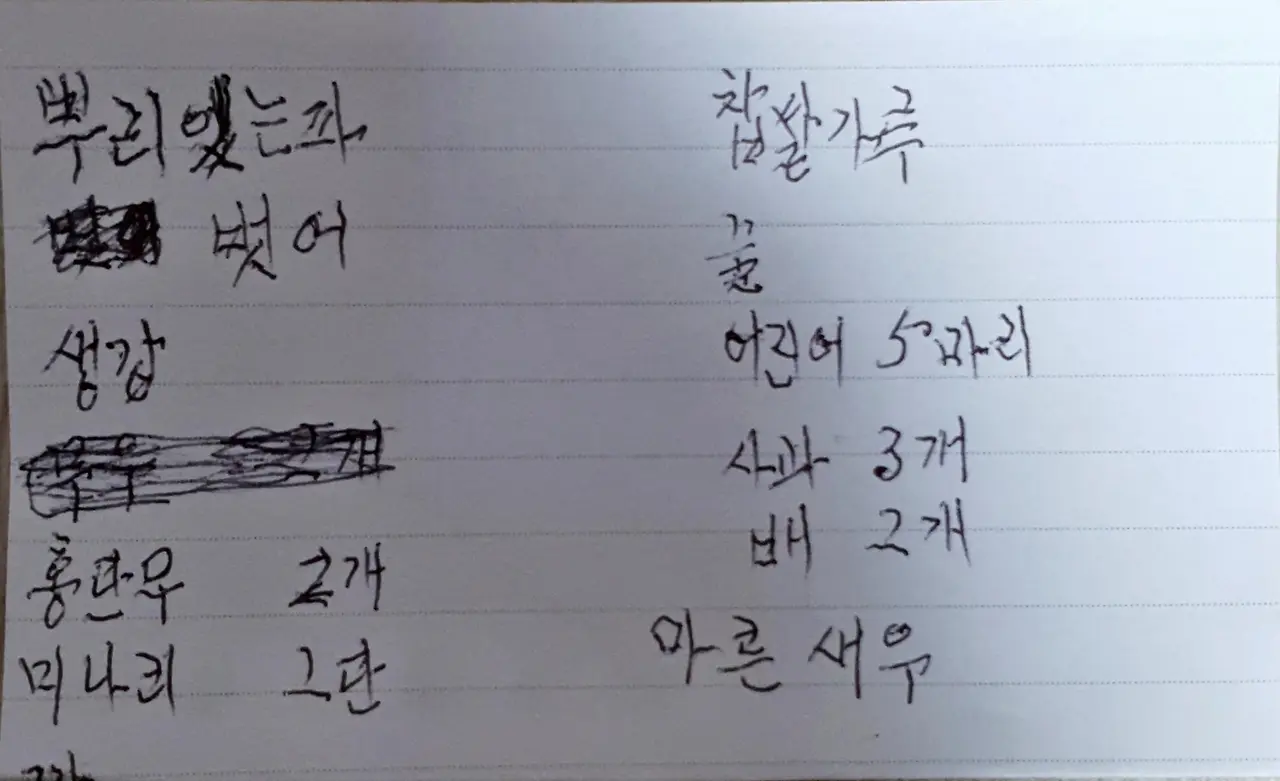 뿌리있는파
벗어
생강
홍단무 2개
미나리 2단
찹쌀가루
꿀
어진어 5마리
사과 3개
배 2개
마른 새우